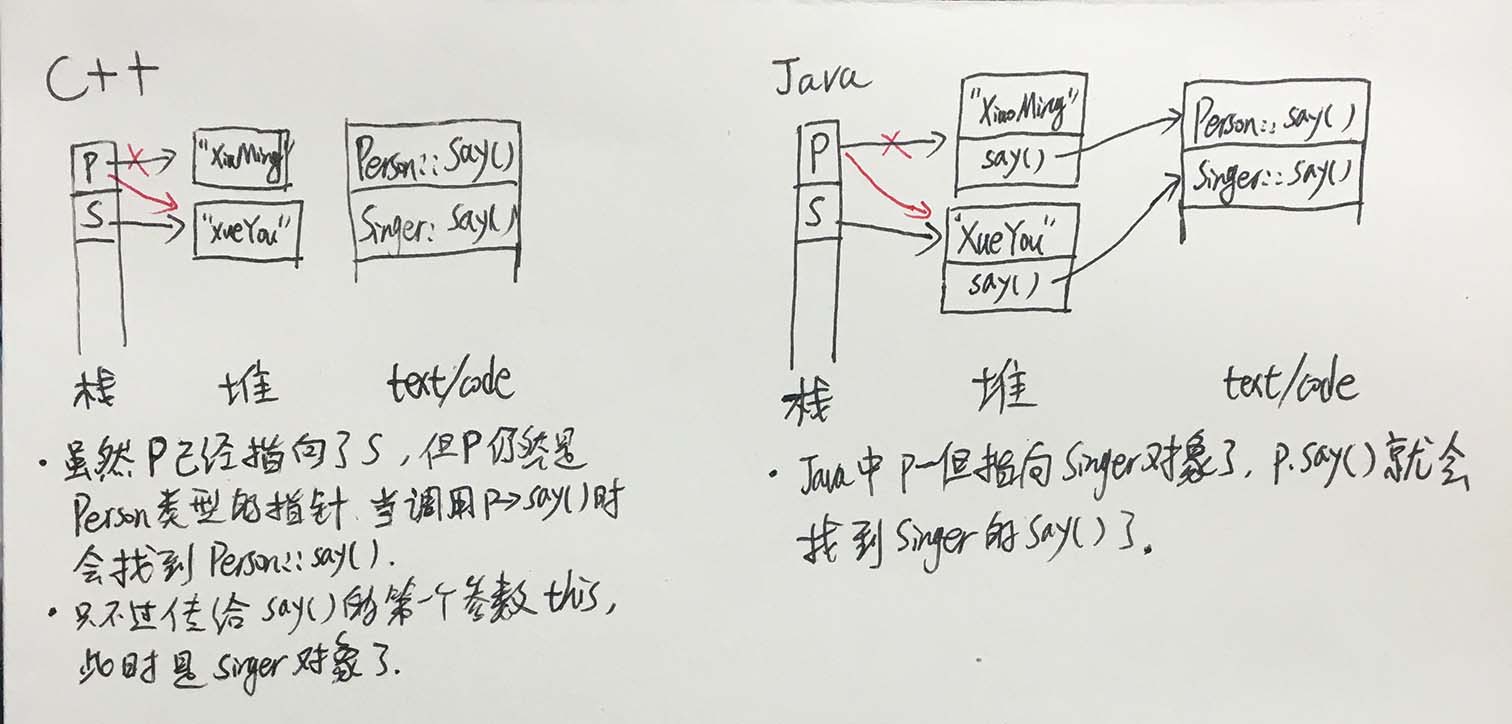 C++
P
S
"XiaoMing"
"XueYou"
Person::say()
Singer: say()
栈 堆 text/code
· 虽然P已经指向了S,但P仍然是
Person类型的指针.当调用p->say()时
会找到Person::say().
· 只不过传给say()的第一个参数this,
此时是singer对象了.
Java
P
S
"XiaoMing"
say()
"XueYou"
say()
Person::say()
Singer::say()
栈 堆 text/code
· Java中P一但指向Singer对象了,p.say()就会
找到Singer的say()了。